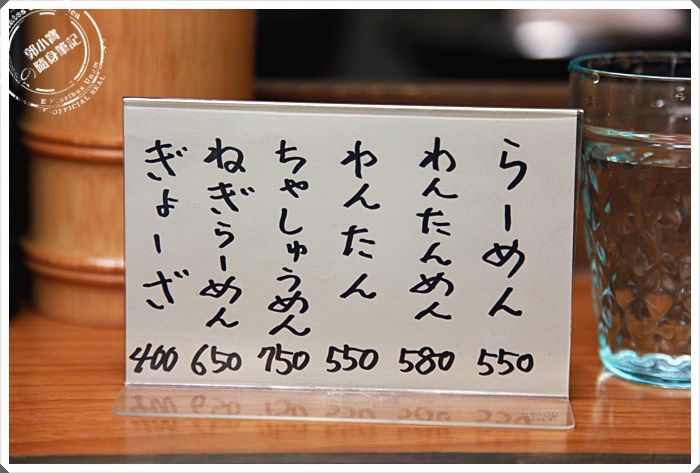 らーめん 550
わんたんめん 580
わんたん 550
ちゃしゅうめん 750
ねぎらーめん 650
ぎょーざ 400
郭小寶
の隨身筆記